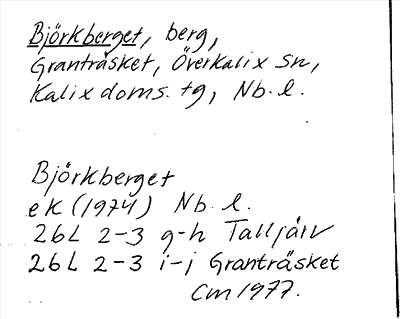 Björkberget, berg,
Granträsket, Överkalix sn,
Kalix doms. tg, Nb. l.
Björkberget
ek (1974) Nb. l.
26L 2-3 g-h Talljärv
26L 2-3 i-j Granträsket
Cm 1977.